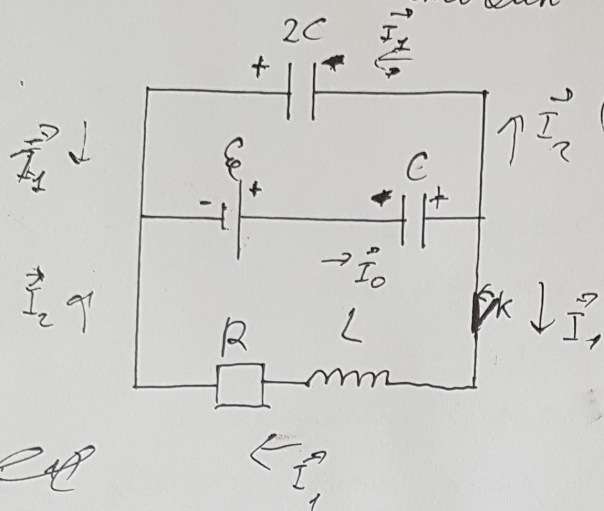 2C
+
I₁
I₁ ↓
↑ I₂
ℰ
- +
C
+
→ I₀
I₂ ↑
R
L
K
↓ I₁
← I₁